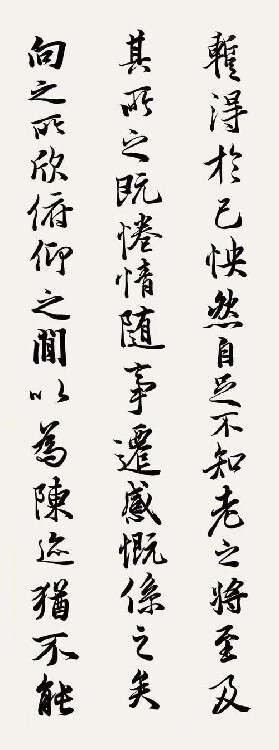 暫得於己怏然自足不知老之將至及
其所之既惓情隨事遷感慨係之矣
向之所欣俯仰之閒以為陳迹猶不能